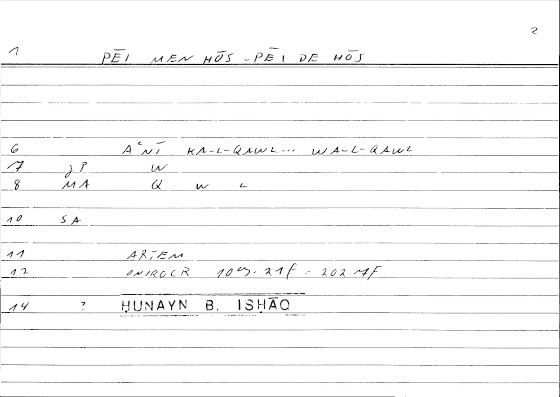 2
1 PĒI MEN HŌS - PĒI DE HŌS
6 AʿNĪ KA-L-QAWL... WA-L-QAWL
7 JP W
8 MA Q W L
10 SA
11 ARTEM
12 ONIROCR 109. 21f = 202 Mf
14 ? ḤUNAYN B. ISḤĀQ